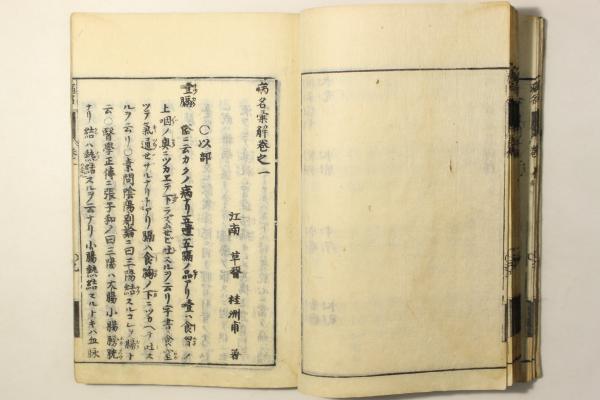 病名彙解巻之一
江南 草醫 桂洲甫 著
〇以部
噎膈 俗ニ云カクノ病ナリ五噎五膈ノ品アリ噎ハ食管ノ
上咽ノ奥ニツカエテ下ラズムセビ吐スルヲ云リ字書ニ食窒
ツテ氣通ゼザルナリトアリ膈ハ食胸ノ下ニツカヘテ吐ス
ルヲ云リ〇素問陰陽別論ニ曰三陽結スルコレヲ膈ト
云〇醫學正傳ニ張子和ノ曰三陽ハ大腸小腸膀胱
ナリ結ハ熱結スルヲ云ナリ小腸熱結スルトキハ血脉